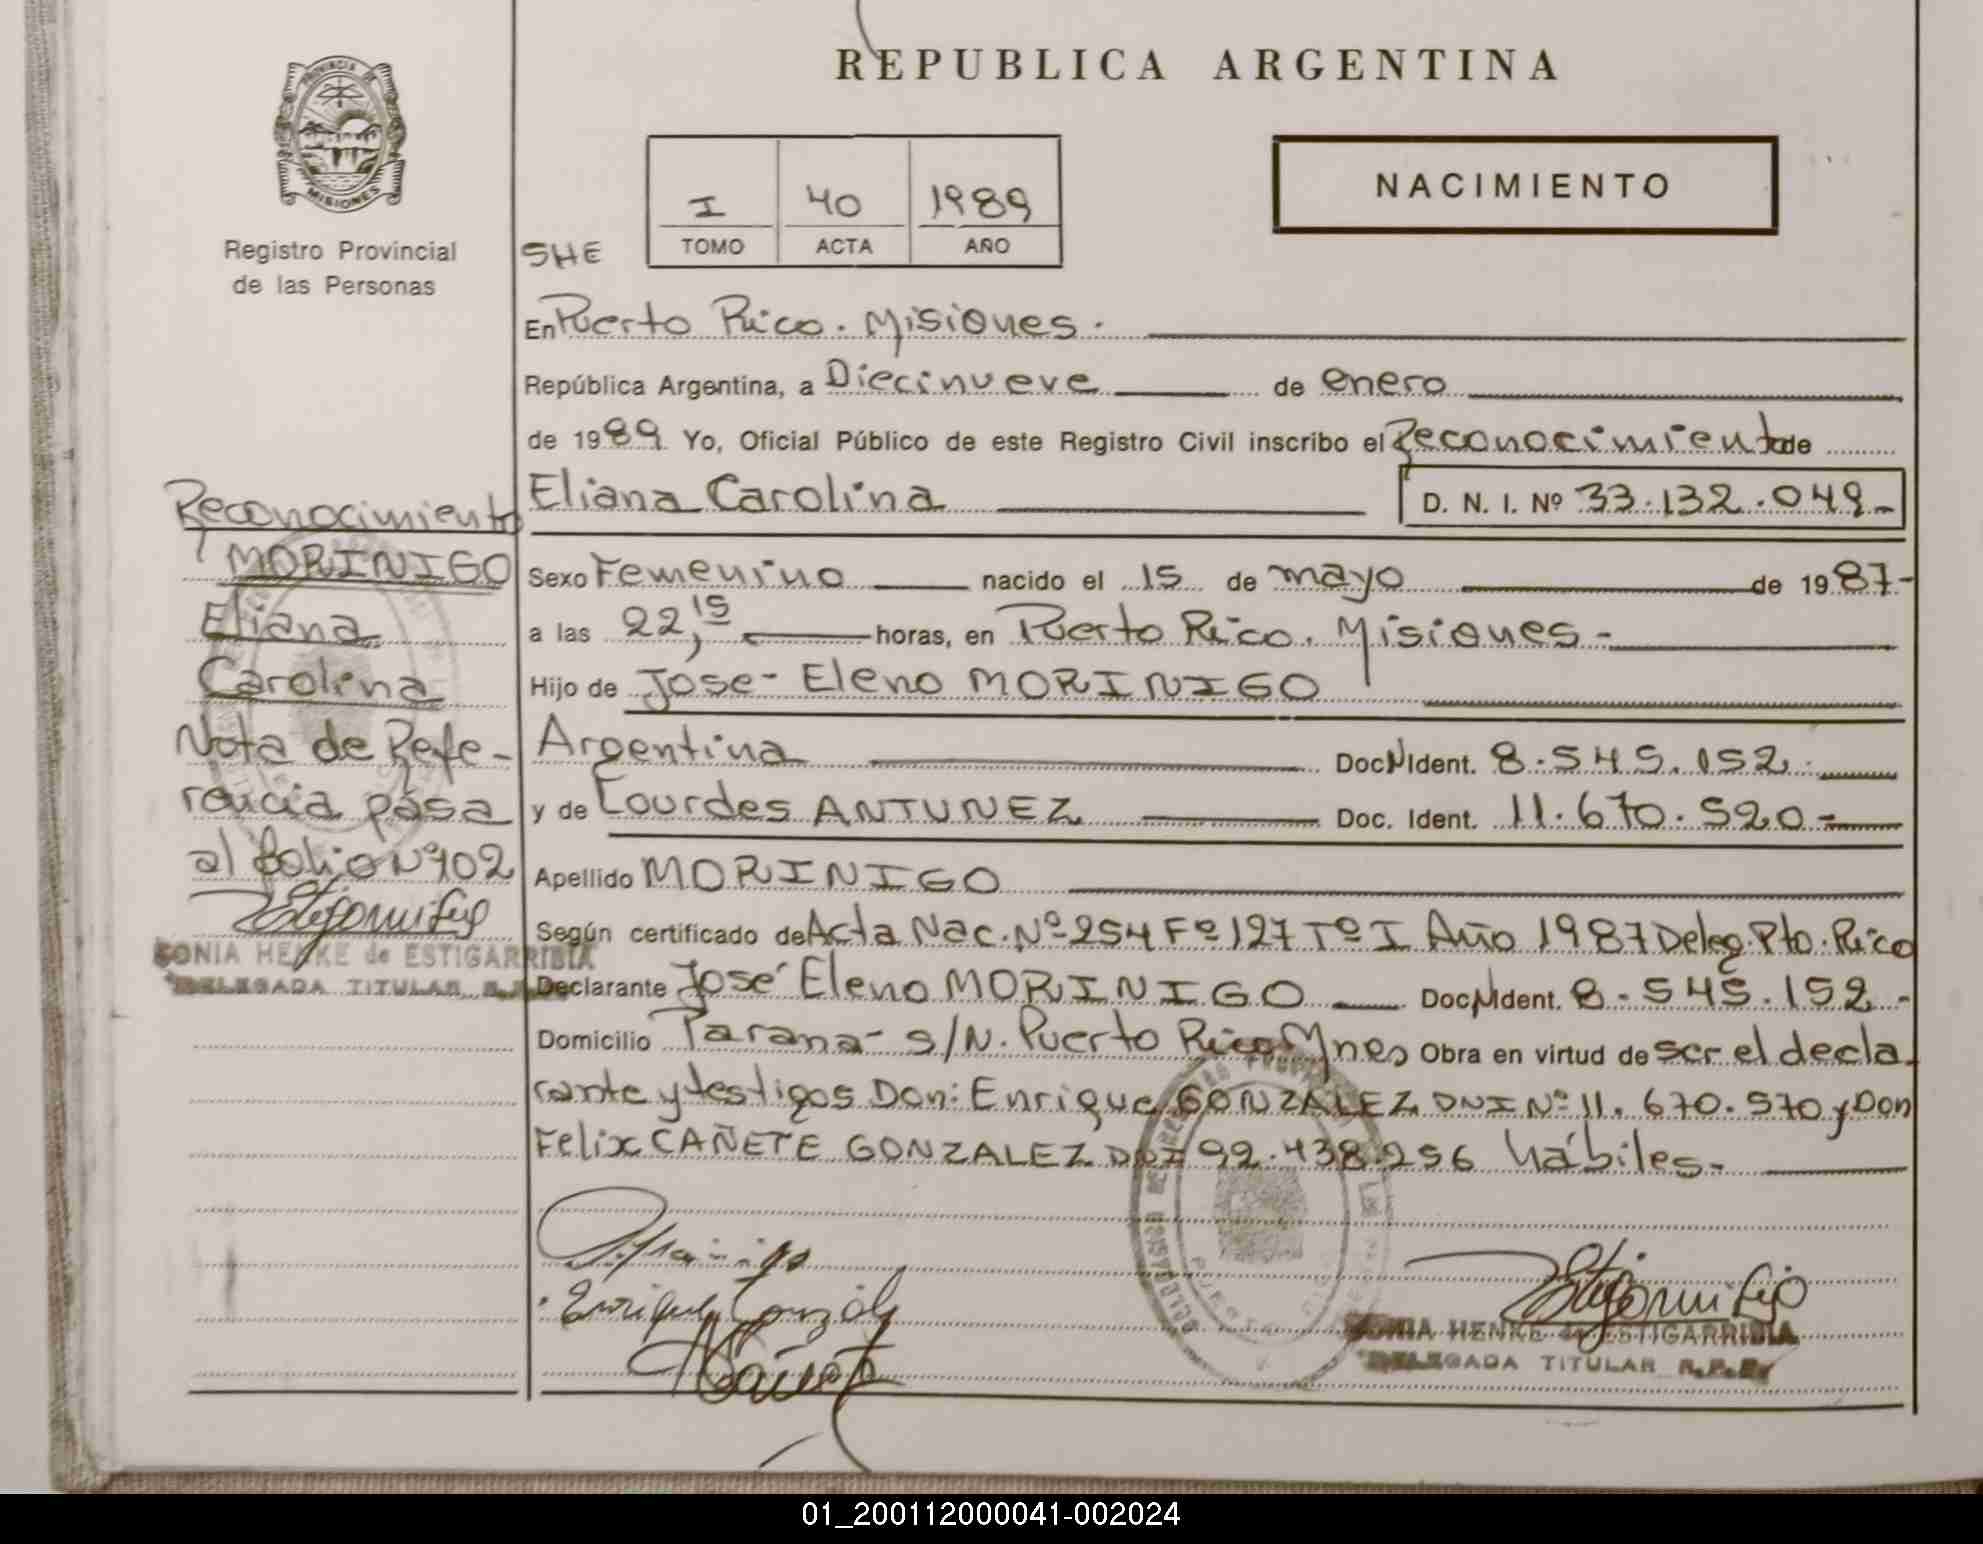 REPUBLICA ARGENTINA
PROVINCIA DE
MISIONES
Registro Provincial
de las Personas
I 40 1989
TOMO ACTA AÑO
NACIMIENTO
SHE
En Puerto Rico. Misiones.
República Argentina, a Diecinueve de enero
de 1989 Yo, Oficial Público de este Registro Civil inscribo el Reconocimiento de
Eliana Carolina D. N. I. Nº 33.132.049-
Sexo Femenino nacido el 15 de mayo de 1987-
a las 22,15 horas, en Puerto Rico. Misiones-
Hijo de José- Eleno MORINIGO
Argentina Doc N Ident. 8.545.152.
y de Lourdes ANTUNEZ Doc. Ident. 11.670.520-
Apellido MORINIGO
Según certificado de Acta Nac. Nº 254 Fº 127 Tº I Año 1987 Deleg. Pto. Rico
Declarante José Eleno MORINIGO Doc N Ident. 8-545.152-
Domicilio Parana- s/N. Puerto Rico Mnes Obra en virtud de ser el decla-
rante y testigos Don: Enrique GONZALEZ DNI Nº 11.670.570 y Don
Felix CAÑETE GONZALEZ DNI 92.438.256 hábiles-
Reconocimiento
MORINIGO
Eliana
Carolina
Nota de Refe-
rencia pasa
al folio Nº 102
SONIA HENKE de ESTIGARRIBIA
DELEGADA TITULAR
Enrique González
Cañete
SONIA HENKE de ESTIGARRIBIA
DELEGADA TITULAR R.P.P.
01_200112000041-002024